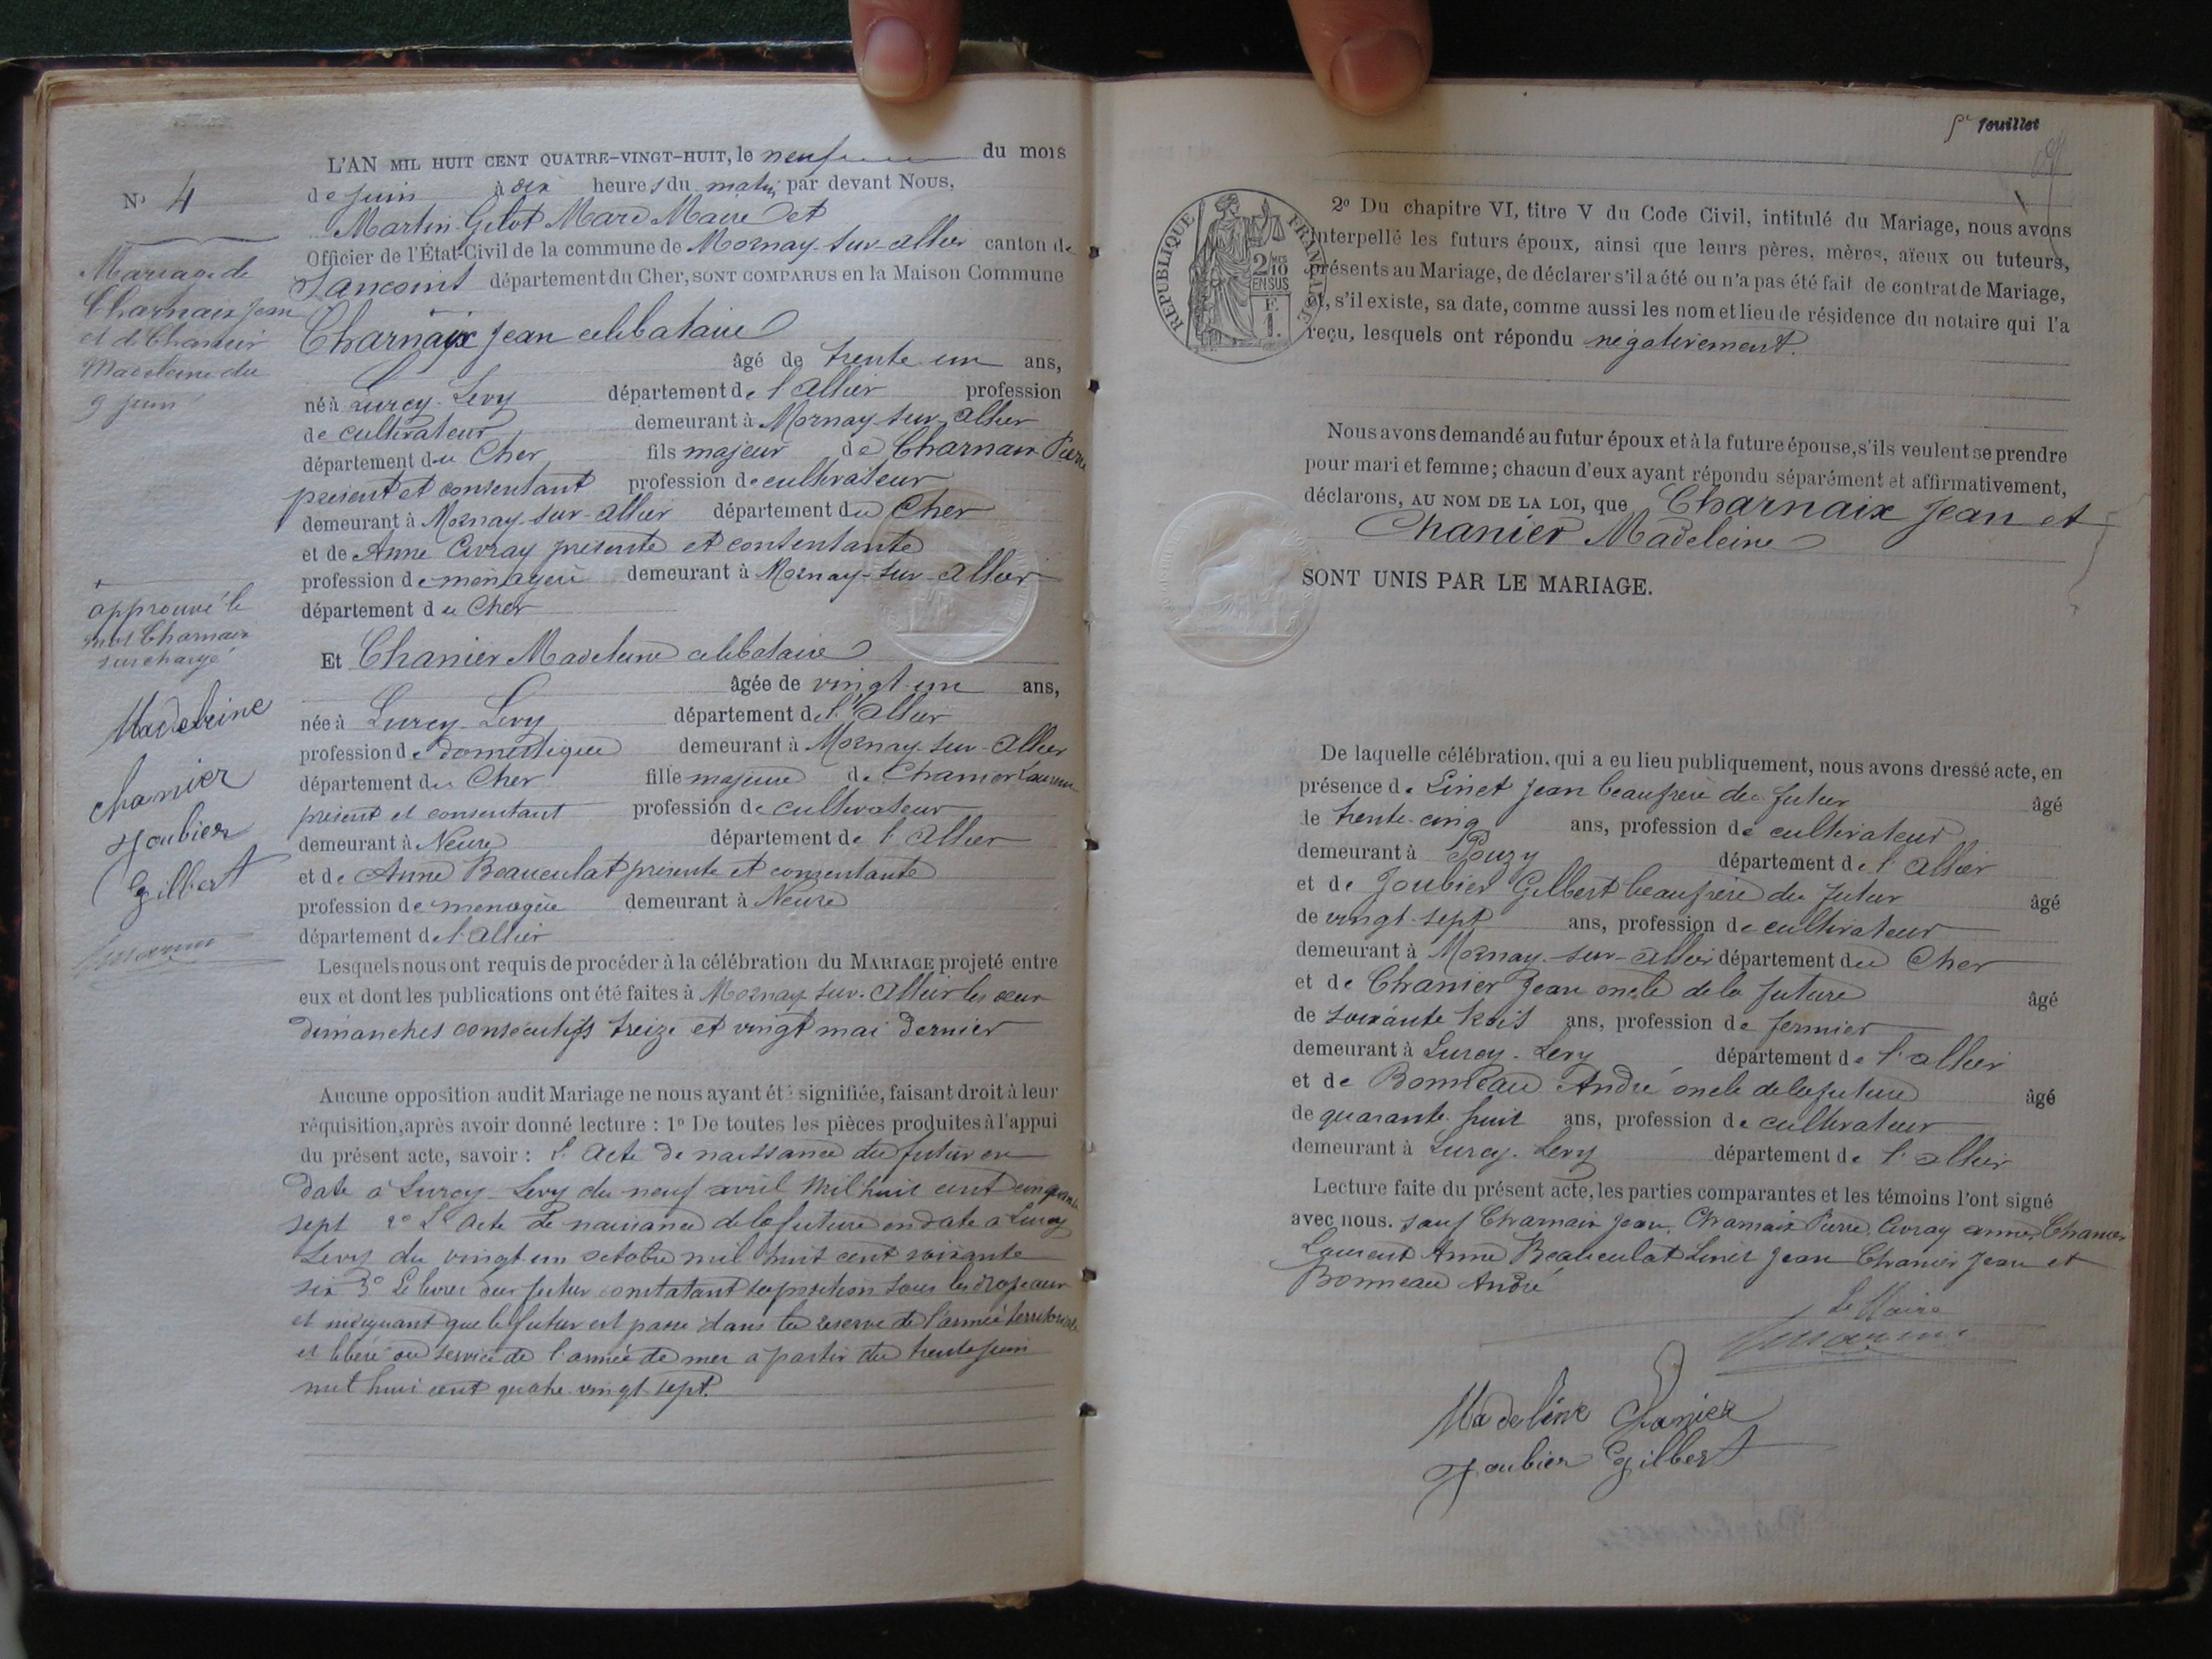 L'AN MIL HUIT CENT QUATRE-VINGT-HUIT, le neuf du mois
de juin à dix heures du matin par devant Nous,
Martin Gilot Marc Maire et
Officier de l'État-Civil de la commune de Mornay-sur-Allier canton de
Sancoins département du Cher, SONT COMPARUS en la Maison Commune
Charnaix Jean celibataire
âgé de trente un ans,
né à Lurcy-Levy département de l'Allier profession
de cultivateur demeurant à Mornay-sur-Allier
département du Cher fils majeur de Charnaix Pierre
présent et consentant profession de cultivateur
demeurant à Mornay-sur-Allier département du Cher
et de Anne Civray présente et consentante
profession de ménagère demeurant à Mornay-sur-Allier
département du Cher
Et Chanier Madeleine celibataire
âgée de vingt-un ans,
née à Lurcy-Levy département de l'Allier
profession de domestique demeurant à Mornay-sur-Allier
département du Cher fille majeure de Chanier Laurent
présent et consentant profession de cultivateur
demeurant à Neure département de l'Allier
et de Anne Beauculat présente et consentante
profession de menagère demeurant à Neure
département de l'Allier
Lesquels nous ont requis de procéder à la célébration du MARIAGE projeté entre
eux et dont les publications ont été faites à Mornay-sur-Allier les deux
dimanches consécutifs treize et vingt mai dernier
Aucune opposition audit Mariage ne nous ayant été signifiée, faisant droit à leur
réquisition, après avoir donné lecture : 1º De toutes les pièces produites à l'appui
du présent acte, savoir : L'Acte de naissance du futur en
date à Lurcy-Levy du neuf avril mil huit cent cinquante
sept 2º L'acte de naissance de la future en date à Lurcy
Levy du vingt-un octobre mil huit cent soixante
six 3º Le livret du futur constatant sa position sous les drapeaux
et indiquant que le futur est passé dans la reserve de l'armée territoriale
et libéré du service de l'armée de mer à partir du trente juin
mil huit cent quatre-vingt-sept.
Nº 4
Mariage de
Charnaix Jean
et de Chanier
Madeleine du
9 juin
approuvé le
mot Charnaix
surchargé
Madeleine
Chanier
Joubier
Gilbert
5e feuillet
RÉPUBLIQUE FRANÇAISE
2/10
EN SUS
F.
1.
2º Du chapitre VI, titre V du Code Civil, intitulé du Mariage, nous avons
interpellé les futurs époux, ainsi que leurs pères, mères, aïeux ou tuteurs,
présents au Mariage, de déclarer s'il a été ou n'a pas été fait de contrat de Mariage,
et, s'il existe, sa date, comme aussi les nom et lieu de résidence du notaire qui l'a
reçu, lesquels ont répondu négativement.
Nous avons demandé au futur époux et à la future épouse, s'ils veulent se prendre
pour mari et femme; chacun d'eux ayant répondu séparément et affirmativement,
déclarons, AU NOM DE LA LOI, que Charnaix Jean et
Chanier Madeleine
SONT UNIS PAR LE MARIAGE.
De laquelle célébration, qui a eu lieu publiquement, nous avons dressé acte, en
présence de Linet Jean beaufrère du futur âgé
de trente-cinq ans, profession de cultivateur
demeurant à Pouzy département de l'Allier
et de Joubier Gilbert beaufrère du futur âgé
de vingt-sept ans, profession de cultivateur
demeurant à Mornay-sur-Allier département du Cher
et de Chanier Jean oncle de la future âgé
de soixante trois ans, profession de fermier
demeurant à Lurcy-Levy département de l'Allier
et de Bonneau André oncle de la future âgé
de quarante-huit ans, profession de cultivateur
demeurant à Lurcy-Levy département de l'Allier
Lecture faite du présent acte, les parties comparantes et les témoins l'ont signé
avec nous. sauf Charnaix Jean, Charnaix Pierre, Civray anne, Chanier
Laurent Anne Beauculat Linet Jean Chanier Jean et
Bonneau André
Le Maire
Madeleine Chanier
Joubier Gilbert